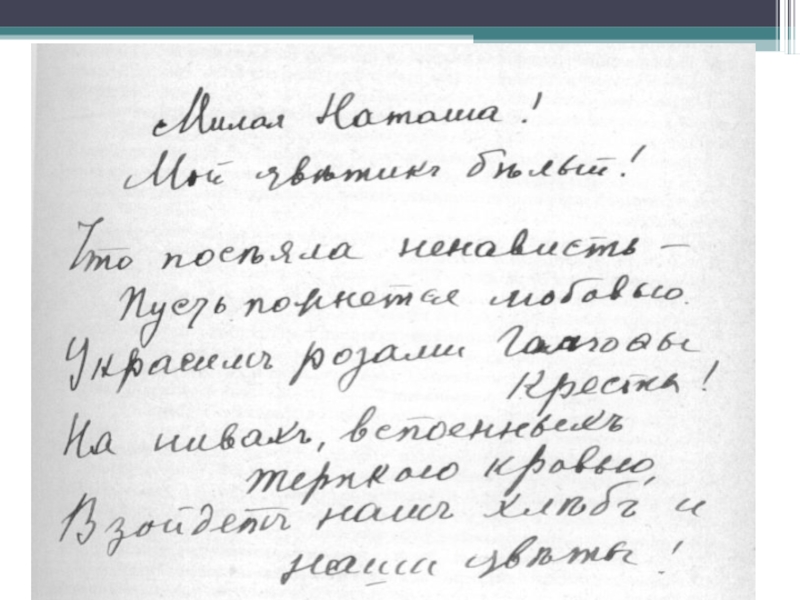 Милая Наташа!
Мой цвѣтикъ бѣлый!
Что посѣяла ненависть –
Пусть пожнется любовью.
Украсимъ розами Голгофы
Кресты!
На нивахъ, вспоенныхъ
терпкою кровью,
Взойдетъ нашъ хлѣбъ и
наши цвѣты!